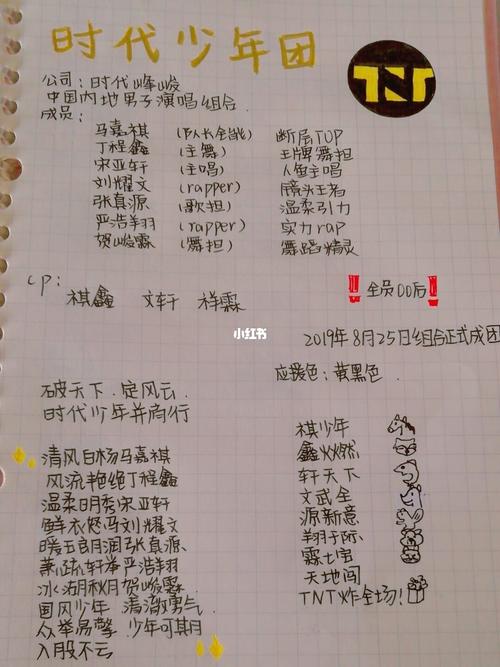 时代少年团
TNT
公司：时代峰峻
中国内地男子演唱组合.
成员：
马嘉祺 (队长全能) 断层TOP
丁程鑫 (主舞) 王牌舞担
宋亚轩 (主唱) 人鱼主唱
刘耀文 (rapper) 镜头王者
张真源 (歌担) 温柔引力
严浩翔 (rapper) 实力rap
贺峻霖 (舞担) 舞蹈精灵
cp:
祺鑫 文轩 祥霖
!! 全员00后 !!
小红书
2019年8月25日组合正式成团
应援色：黄黑色.
破天下.定风云.
时代少年并肩行
清风白杨马嘉祺
风流艳绝丁程鑫
温柔明秀宋亚轩
鲜衣怒马刘耀文
暖玉月润张真源、
萧疏轩举严浩翔
冰湖秋月贺峻霖
国风少年 清澈勇气
众举易擎 少年可期
入股不亏
祺少年
鑫火燃
轩天下
文武全
源新意
翔于际、
霖七宝
天地闯
TNT炸全场!